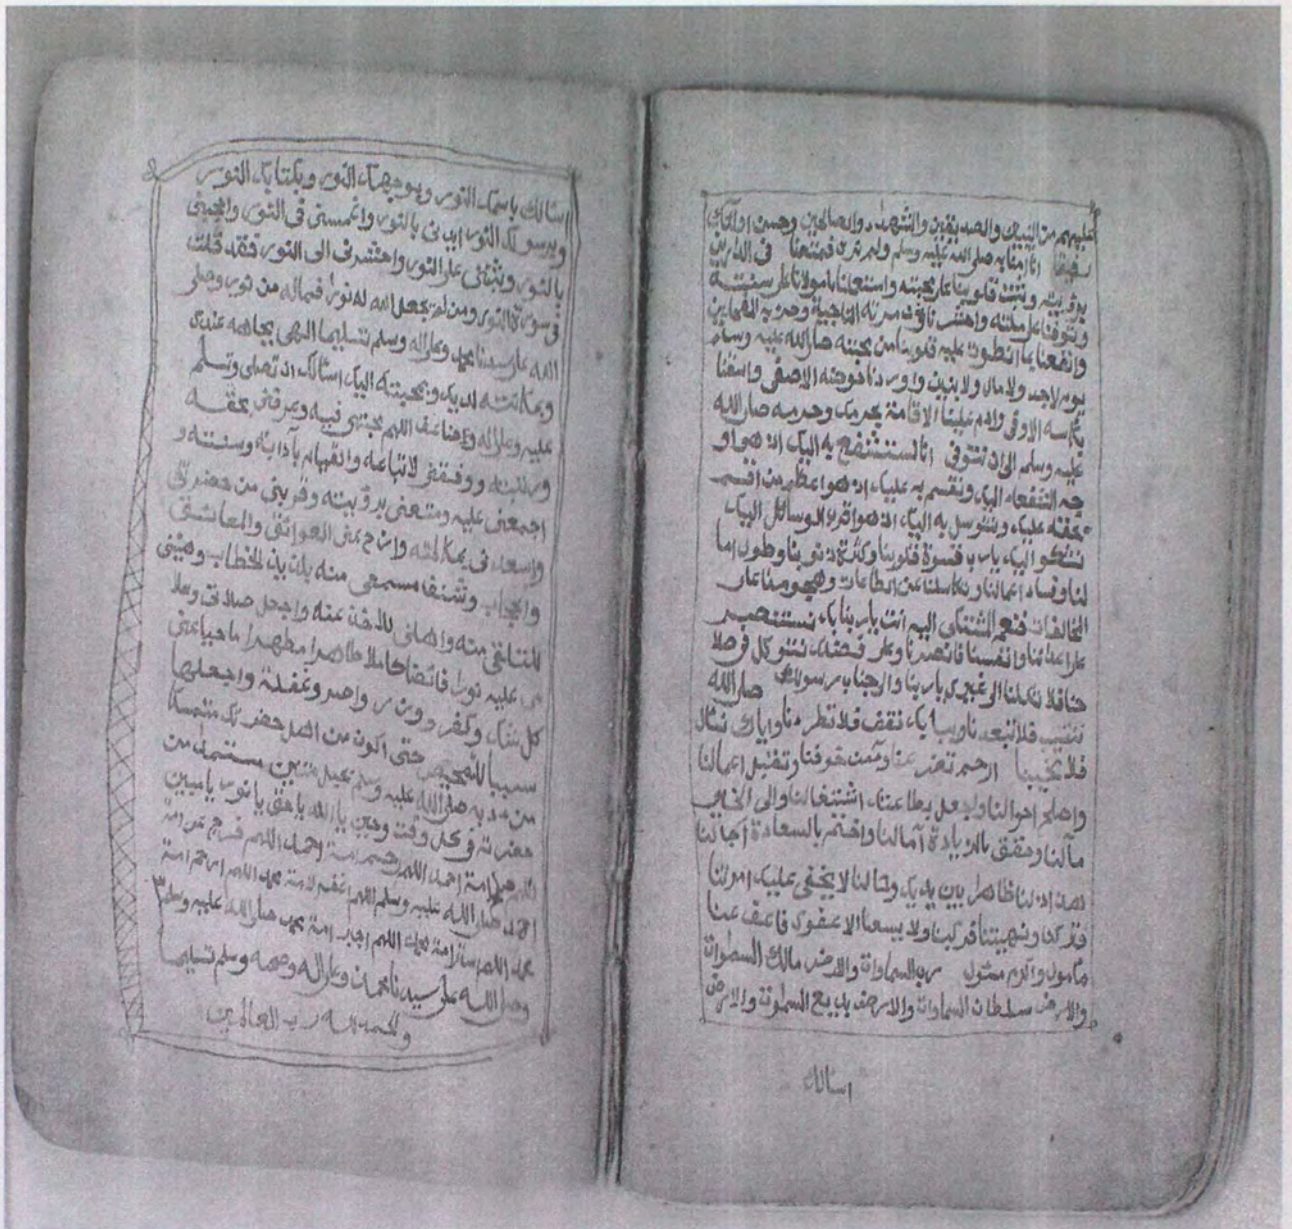 عليهم من النبيين والصديقين والشهداء والصالحين وحسن اولئك
رفيقا انا امنا به صلى الله عليه وسلم ولم نره فمتعنا في الدارين
برؤيته وثبت قلوبنا على محبته واستعملنا يا مولانا على سنته
وتوفنا على ملته واحشرنا في زمرته الناجية وحزبه المفلحين
وانفعنا بما انطوت عليه قلوبنا من محبته صلى الله عليه وسلم
يوم لا جد ولا مال ولا بنين واوردنا حوضه الاصفى واسقنا
بكاسه الاوفى وادم علينا الاقامة بحرمك وحرمه صلى الله
عليه وسلم الى ان نتوفى انا نستشفع به اليك اذ هو او
جه الشفعاء اليك ونقسم به عليك اذ هو اعظم من اقسم
بحقه عليك ونتوسل به اليك اذ هو اقرب الوسائل اليك
نشكو اليك يا رب قسوة قلوبنا وكثرة ذنوبنا وطول اما
لنا وفساد اعمالنا وتكاسلنا عن الطاعات وهجومنا على
المخالفات فنعم المشتكى اليه انت يا ربنا بك نستنصر
على اعدائنا وانفسنا فانصرنا وعلى فضلك نتوكل في صلا
حنا فلا تكلنا الى غيرك يا ربنا والى جناب رسولك صلى الله
ننتسب فلا تبعدنا وببابك نقف فلا تطردنا واياك نسال
فلا تخيبنا ارحم تضرعنا وءامن خوفنا وتقبل اعمالنا
واصلح احوالنا واجعل بطاعتك اشتغالنا والى الخير
مآلنا وحقق بالزيادة آمالنا واختم بالسعادة آجالنا
هذا ذلنا ظاهرا بين يديك وحالنا لا يخفى عليك امرتنا
فتركنا ونهيتنا فركبنا ولا يسعنا الا عفوك فاعف عنا
مامول واكرم مسئول رب السماوات والارض مالك السموات
والارض سلطان السماوات والارض بديع السموت والارض
اسالك
اسالك باسمك النور وبوجهك النور وبكتابك النور
وبرسولك النور ايدني بالنور واغمسني في النور واحجبني
بالنور وثبتني على النور واحشرني الى النور فقد قلت
في سورة النور ومن لم يجعل الله له نورا فما له من نور وصلى
الله على سيدنا محمد وعلى اله وسلم تسليما الهي بجاهه عندك
وبمكانته لديك وبمحبته اليك اسالك ان تصلي وتسلم
عليه وعلى اله وضاعف اللهم محبتي فيه وعرفني بحقه
ووفقني لاتباعه والقيام بآدابه وسنته و
اجمعني عليه ومتعني برؤيته وقربني من حضرته
واسعدني بمكالمته وازح عني العوائق والعلائق
والحجاب وشنف مسمعي منه بلذيذ الخطاب وهيئني
للتلقي منه واهلني للاخذ عنه واجعل صلاتي وسلا
مي عليه نورا فائضا كاملا طاهرا مطهرا ماحيا عني
كل شك وكفر ووزر واصر وغفلة واجعلها
سببا للتمحيص حتى اكون من اهل حضرتك متمسكا
صلى الله عليه وسلم بحبل متين مستمدا من
حضرته في كل وقت وحين يا الله يا حق يا نور يا مبين
امة احمد اللهم ارحم امة احمد اللهم فرج عن امة
احمد صلى الله عليه وسلم اللهم اغفر لامة محمد اللهم ارحم امة
محمد اللهم استر امة محمد اللهم اجبر امة محمد صلى الله عليه وسلم
وصلى الله على سيدنا محمد وعلى اله وصحبه وسلم تسليما
والحمد لله رب العالمين